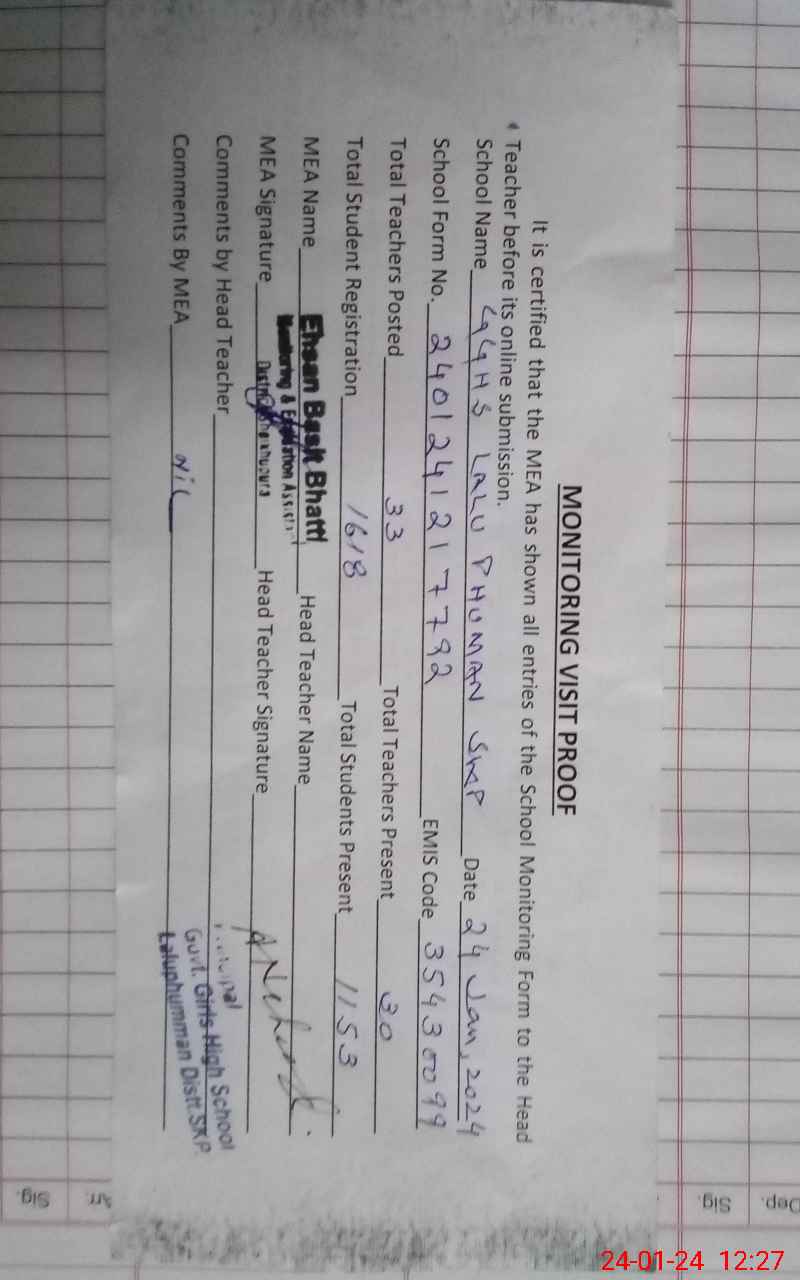 MONITORING VISIT PROOF
It is certified that the MEA has shown all entries of the School Monitoring Form to the Head
Teacher before its online submission.
School Name GGHS LALU PHUMAN SKP Date 24 Jan, 2024
School Form No. 2401241217792 EMIS Code 35430099
Total Teachers Posted 33 Total Teachers Present 30
Total Student Registration 1618 Total Students Present 1153
MEA Name Ehsan Basit Bhatti Head Teacher Name
Monitoring & Evaluation Assistant
MEA Signature Head Teacher Signature
Comments by Head Teacher
Principal
Govt. Girls High School
Laluphumman Distt. SKP.
Comments By MEA Nil
Dep.
Sig
Sig
24-01-24 12:27